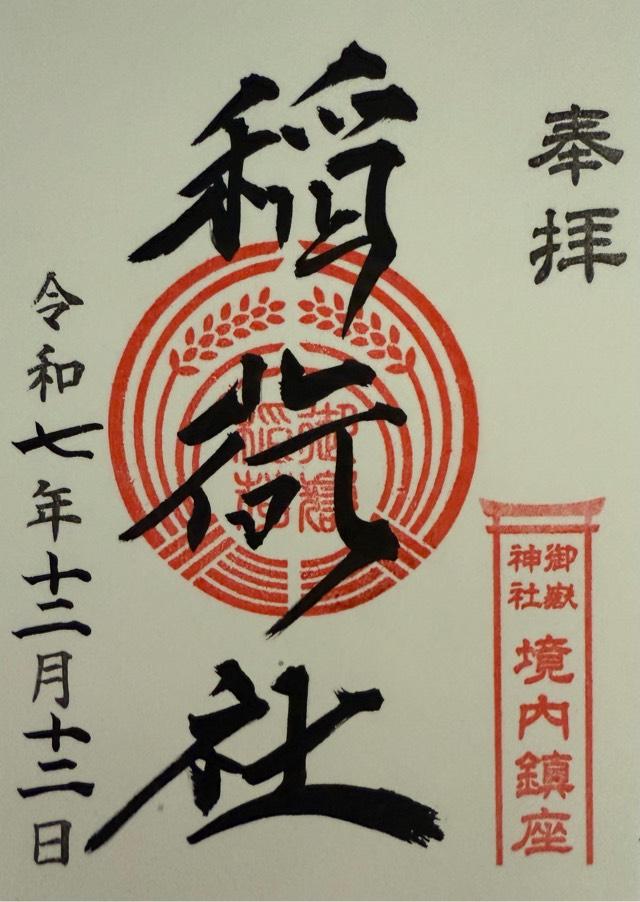 奉拝
御嶽神社
境内鎮座
稲荷社
御嶽
稲荷
令和七年十二月十二日